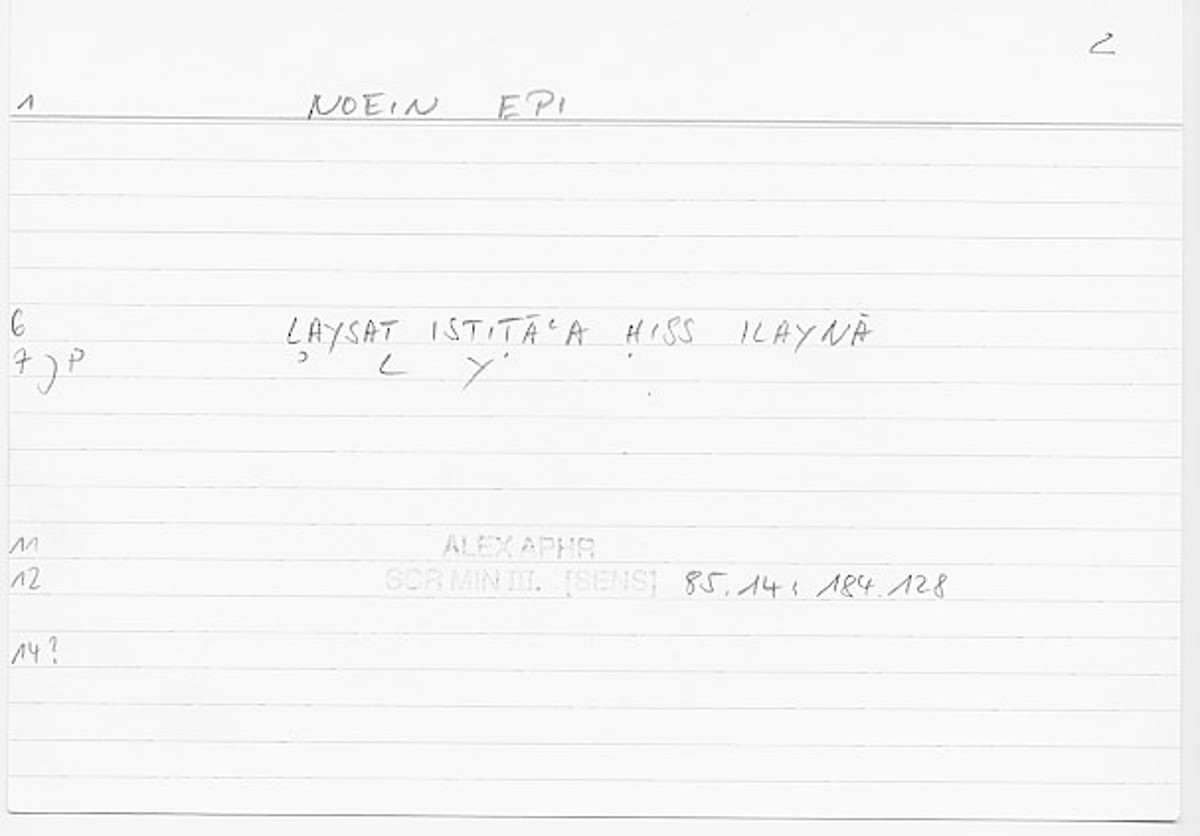 2
1 NOEIN EPI
6 LAYSAT ISTIṬĀʿA ḤISS ILAYNĀ
7 P L Y
11 ALEX APHR
12 SCR MIN III. [SENS] 85.14; 184.128
14?